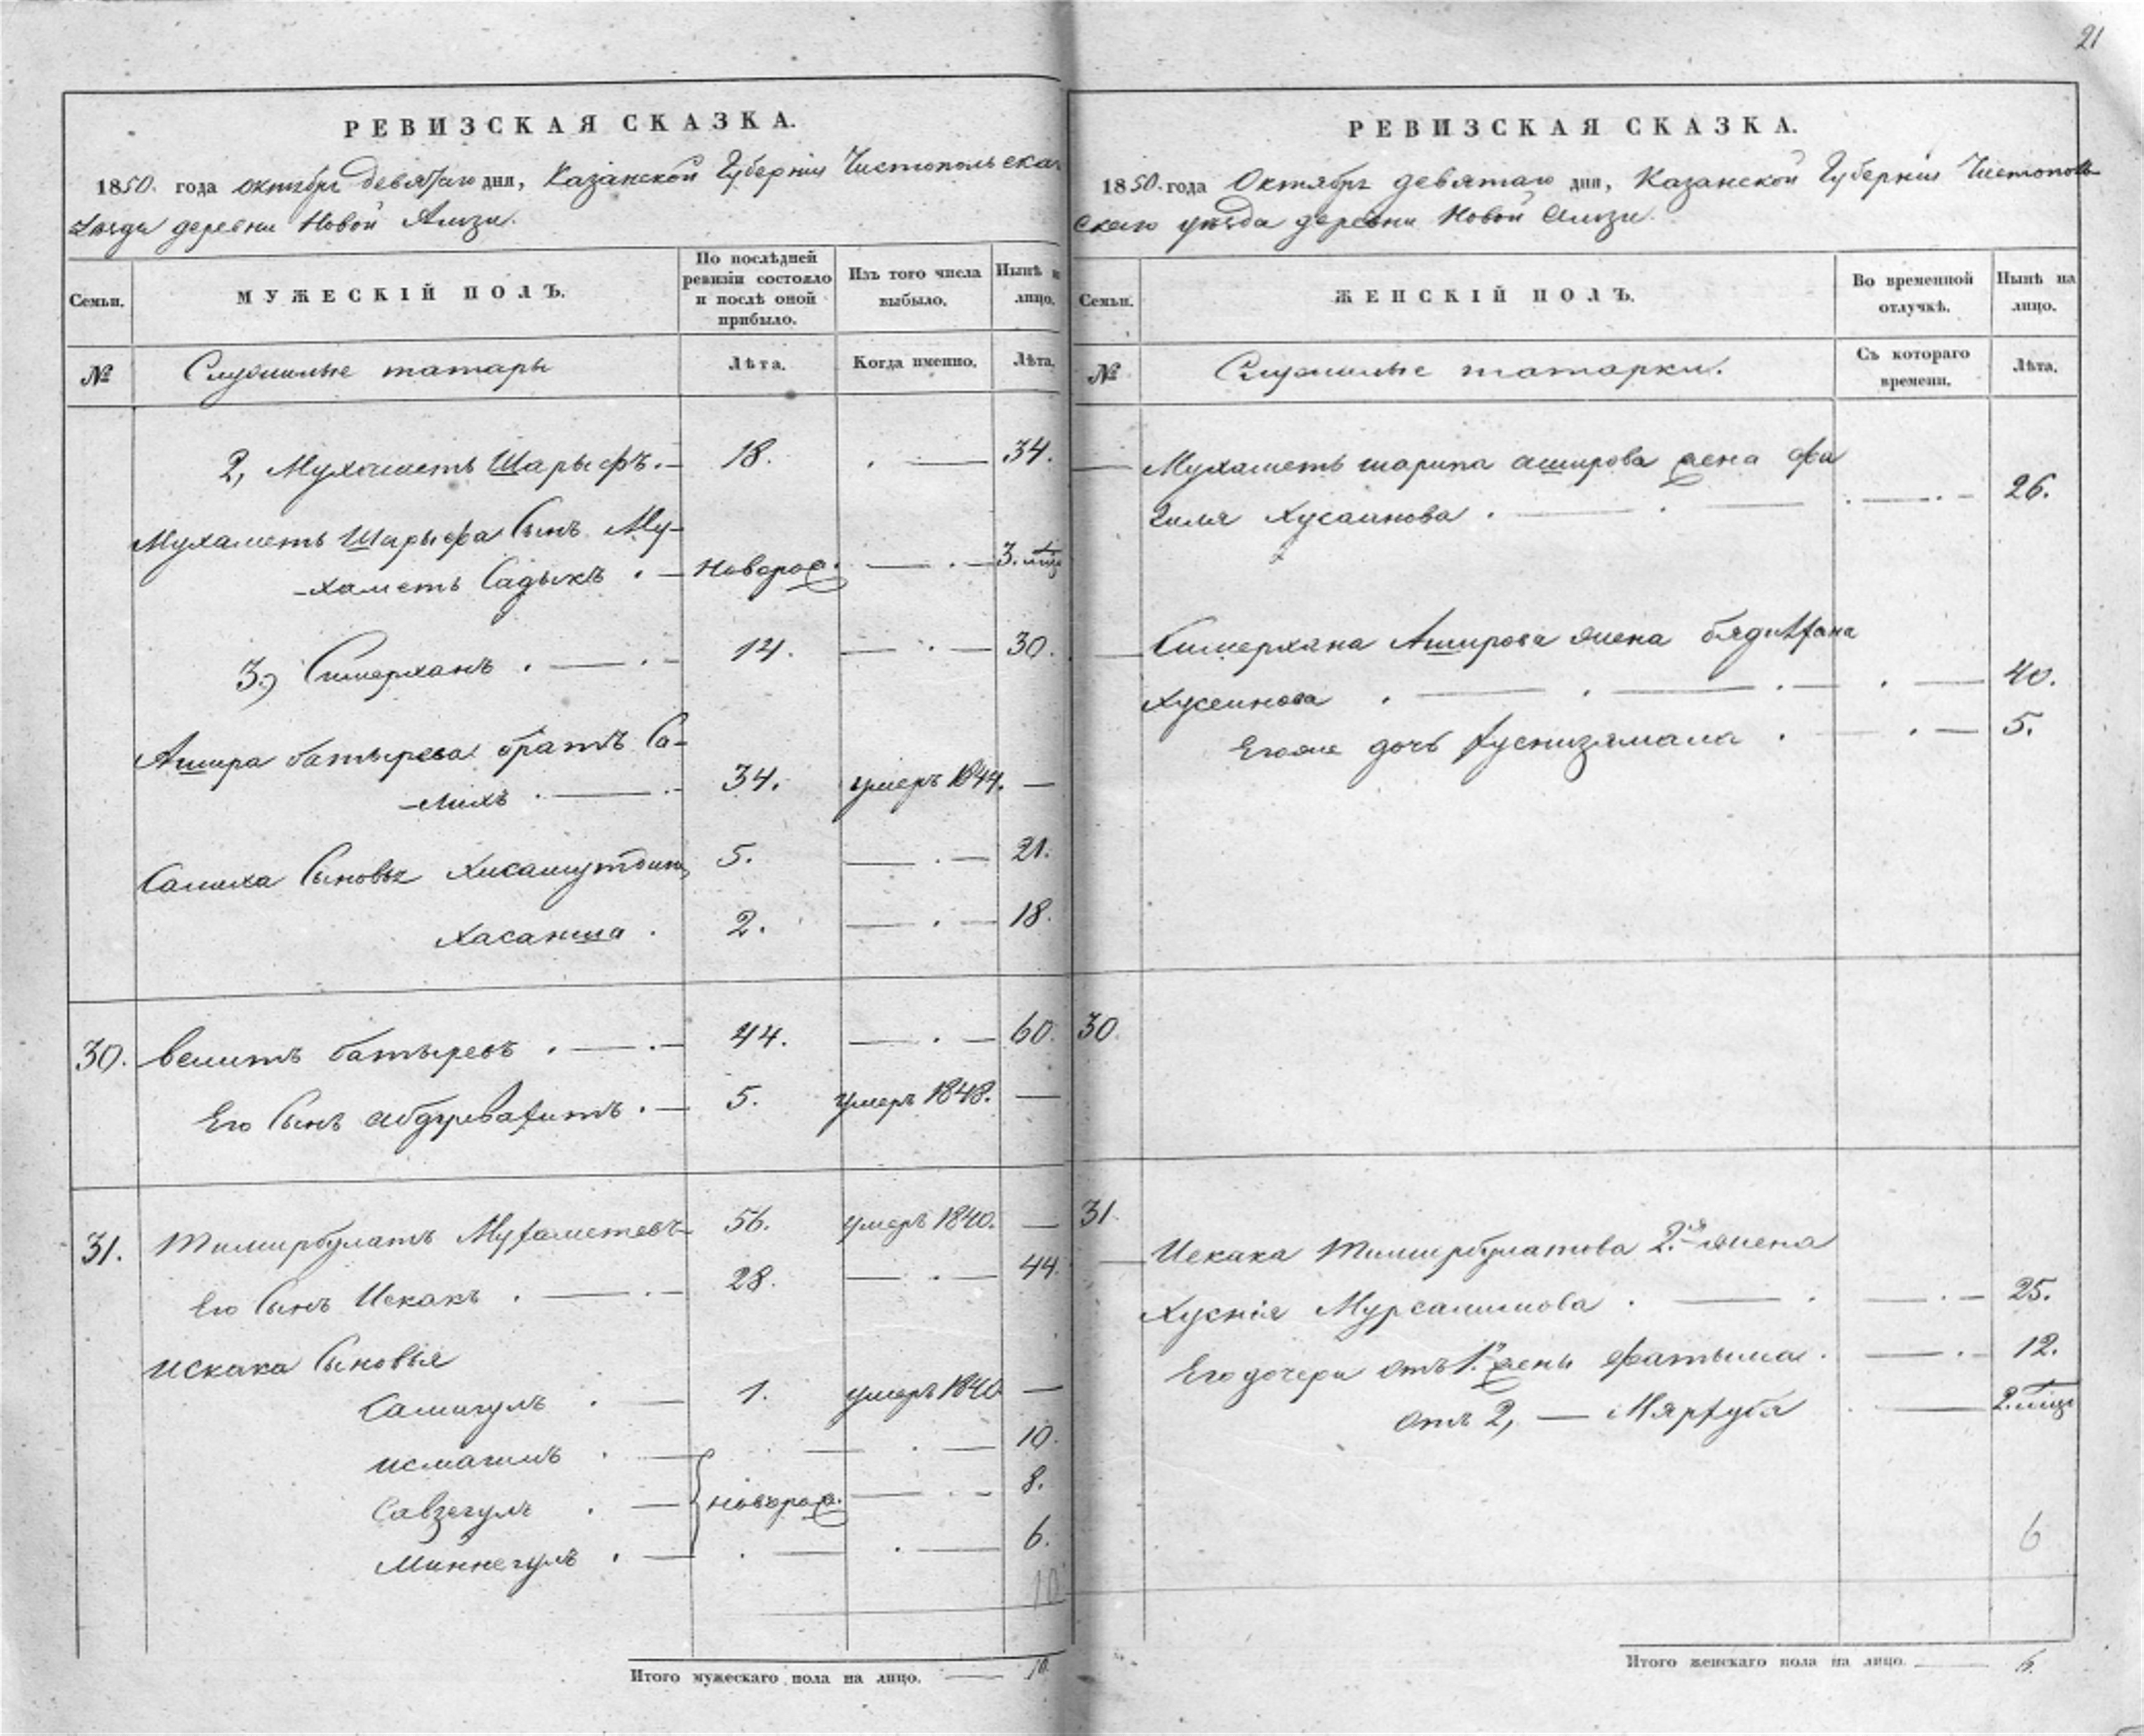 21
РЕВИЗСКАЯ СКАЗКА.
1850. года октября девятаго дня, Казанской Губерніи Чистопольска
уезда деревни Новой Амзи.
Семьи.
МУЖЕСКІЙ ПОЛЪ.
По послѣдней ревизіи состояло и послѣ оной прибыло.
Изъ того числа выбыло.
Нынѣ н лицо.
№
Служилые татары
Лѣта.
Когда именно.
Лѣта.
2, Мухаметь Шарыфъ. 18. 34.
Мухаметь Шарыфа Сынъ Му-
-хаметь Садыкъ Новорож. 3. мѣц
3.) Симерханъ 14. 30.
Ашира батырева братъ Са-
-лихъ 34. умеръ 1844. —
Салиха Сыновья Хисамутдинъ 5. 21.
Хасанша 2. 18.
30. Велитъ батыревъ 44. 60.
Его Сынъ Абдулвахитъ 5. умеръ 1848. —
31. Тимирбулатъ Мухаметевъ 56. умеръ 1840. —
Его Сынъ Искакъ 28. 44.
Искака Сыновья
Самигулъ 1. умеръ 1840 —
Исмагилъ 10.
Сявзегулъ новорож. 8.
Миннегулъ 6.
10
Итого мужескаго пола на лицо. — 10.
РЕВИЗСКАЯ СКАЗКА.
1850. года Октября девятаго дня, Казанской Губерніи Чистополь
скаго уѣзда деревни Новой Амзи.
Семьи.
ЖЕНСКІЙ ПОЛЪ.
Во временной отлучкѣ.
Нынѣ на лицо.
№
Служилые татарки.
Съ котораго времени.
Лѣта.
Мухаметь шарипа аширова жена фа
зиля Хусаинова 26.
Симерхана Аширова жена
Хусеинова 40.
Егоже дочь Хуснизямала 5.
30.
31.
Искака Тимирбулатова 2.я жена
Хусния Мурсалимова 25.
Его дочери отъ 1.й жены Фатыма. 12.
отъ 2, — Мярхуба 2. мѣц
6
Итого женскаго пола на лицо. — 6.